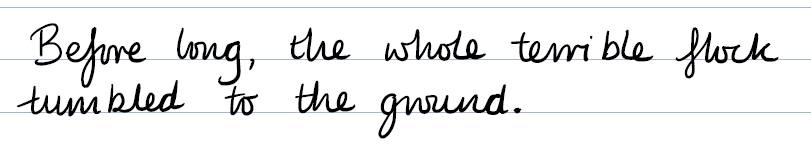 Before long, the whole terrible flock
tumbled to the ground.